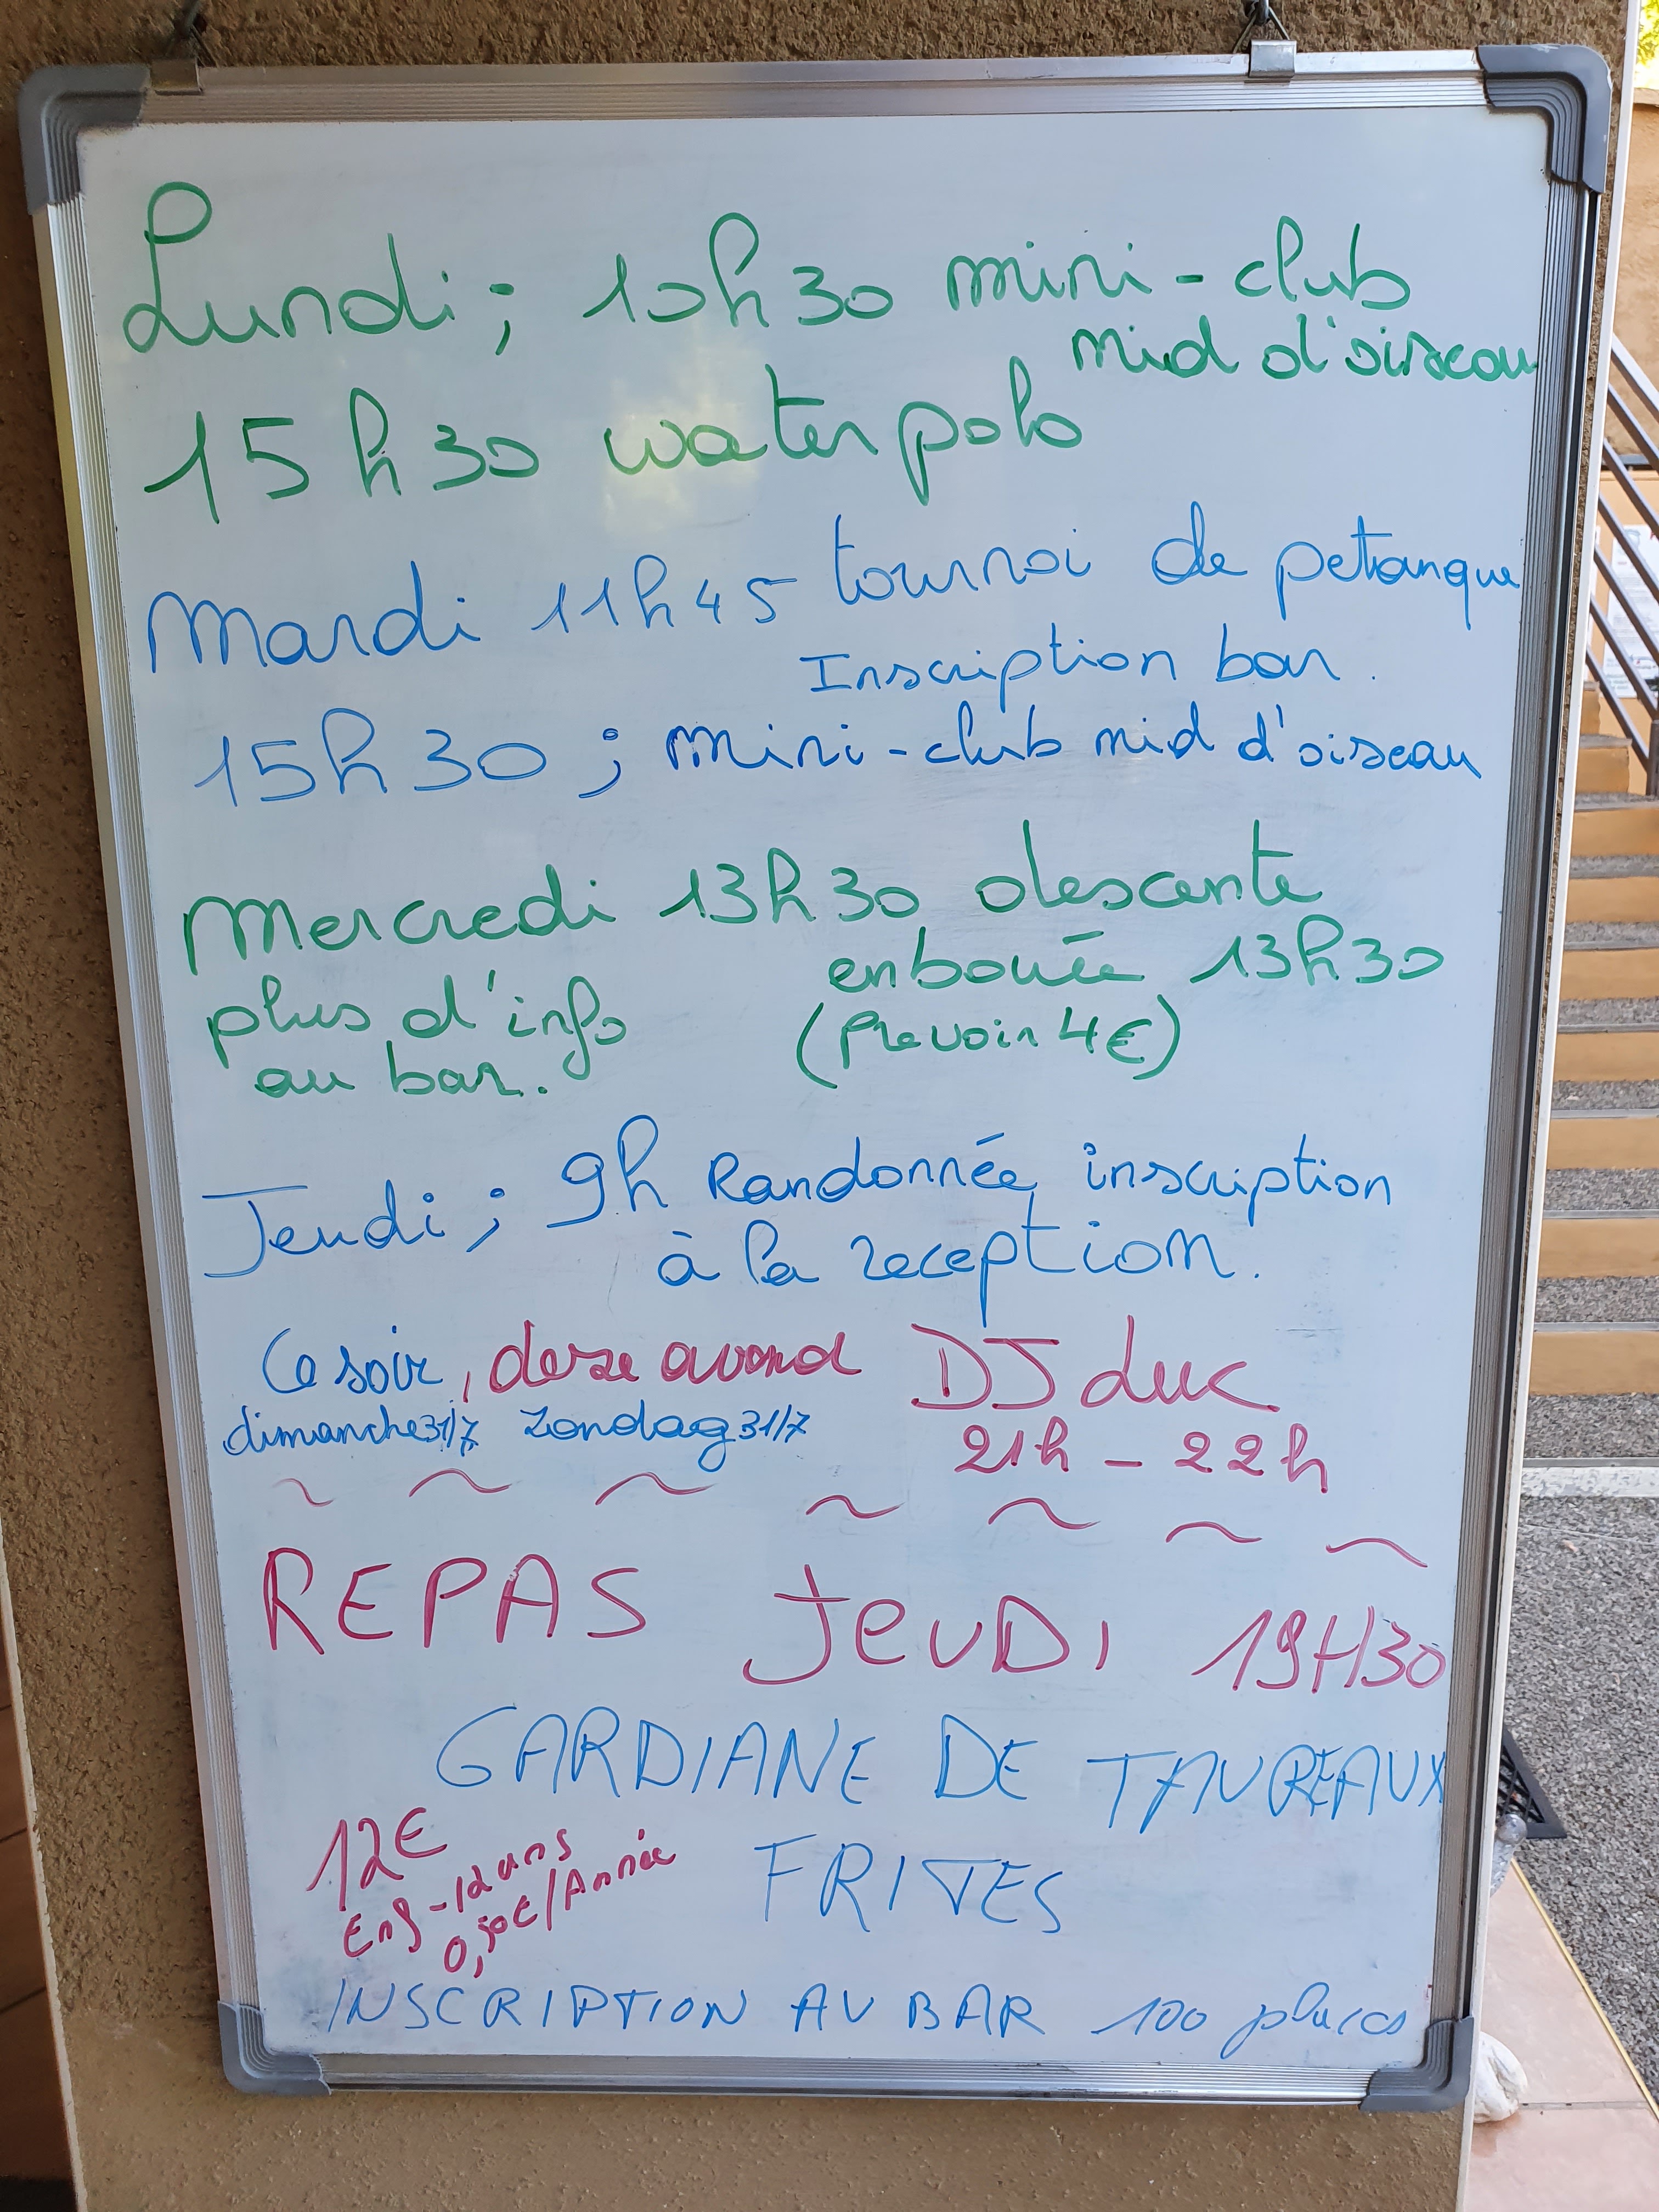 Lundi ; 10h30 mini-club
nid d'oiseau
15h30 water polo
Mardi 11h45 tournoi de petanque
Inscription bar.
15h30 ; mini-club nid d'oiseau
Mercredi 13h30 descente
en bouée 13h30
plus d'info (Prevoir 4€)
au bar.
Jeudi ; 9h Randonnée inscription
à la reception.
Ce soir, deze avond DJ Luc
dimanche 31/7 Zondag 31/7 21h - 22h
~ ~ ~ ~ ~ ~ ~
REPAS JEUDI 19H30
GARDIANE DE TAUREAUX
12€ FRITES
Enf - 12 ans
0,50€/Année
INSCRIPTION AU BAR 100 places